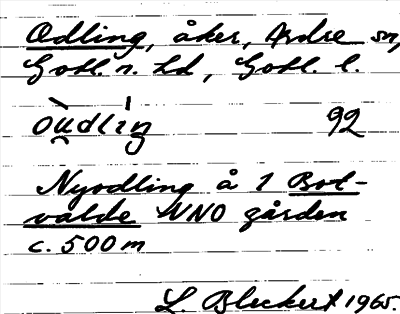 Odling, åker, Ardre sn,
Gotl. n. hd, Gotl. l.
òu̯dlıŋ 92
Nyodling å 1 Bot-
valde NNO gården
c. 500 m
L. Bleckert 1965.